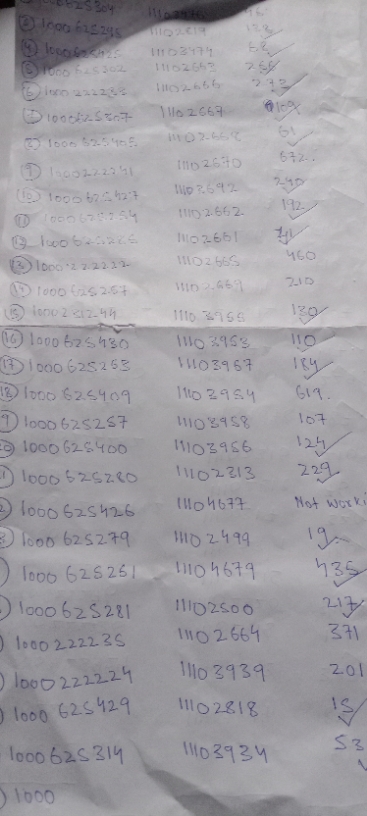 ③ 1000625248 11102819 138
④ 1000625425 11103974 58
⑤ 1000625202 11102663 266
⑥ 1000222238 11102666 273
⑦ 1000625307 11102667 109
⑧ 1000625405 11102668 61
⑨ 1000222241 11102670 672
⑩ 1000625427 11102692 240
⑪ 11102662 192
⑫ 11102661
⑬ 1000222222 11102665 460
⑭ 1000625257 11102669 210
⑮ 11103955 130
⑯ 1000625430 11103953 110
⑰ 1000625263 11103957 184
⑱ 1000625409 11103954 619
1000625257 11103958 107
1000625400 11103956 124
1000625280 11102313 229
1000625426 11104677 Not worki
1000625279 11102499 19
1000625261 11104679 435
1000625281 11102500 217
1000222235 11102664 371
1000222224 11103939 201
1000625429 11102818 15
1000625314 11103934 53
1000